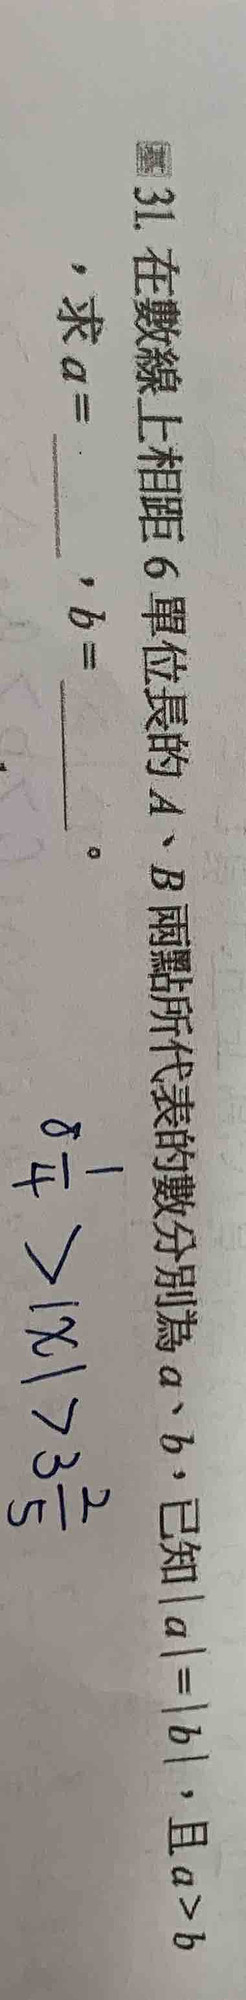 基 31. 在數線上相距 6 單位長的 A、B 兩點所代表的數分別為 a、b，已知|a|=|b|，且 a>b
，求 a=______，b=______。
8 1/4 > |x| > 3 2/5